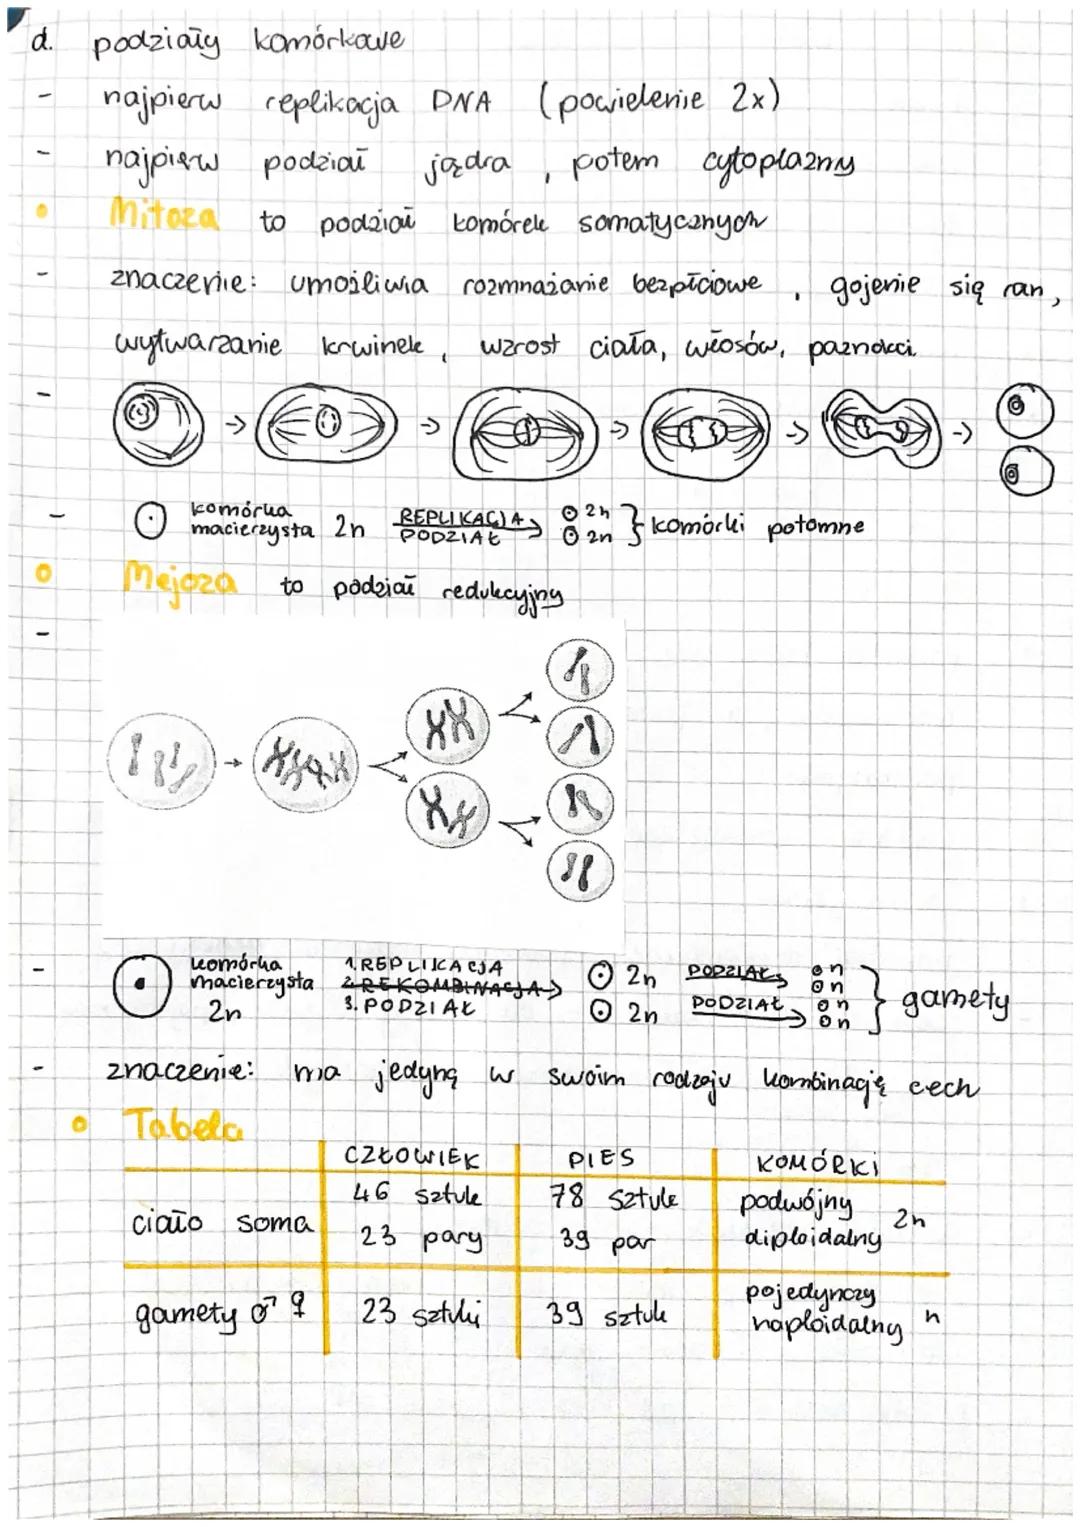 d. podziały komórkowe
- najpierw replikacja DNA (powielenie 2x)
- najpierw podział jądra, potem cytoplazmy
• Mitoza to podział komórek somatycznych
- znaczenie: umożliwia rozmnażanie bezpłciowe, gojenie się ran,
wytwarzanie krwinek, wzrost ciała, włosów, paznokci
- komórka macierzysta 2n REPLIKACJA PODZIAŁ 2n 2n } komórki potomne
• Mejoza to podział redukcyjny
- komórka 1. REPLIKACJA
macierzysta 2. REKOMBINACJA 2n PODZIAŁ n n
2n 3. PODZIAŁ 2n PODZIAŁ n n } gamety
- znaczenie: ma jedyną w swoim rodzaju kombinację cech
• Tabela
CZŁOWIEK PIES KOMÓRKI
ciało soma 46 sztuk 78 sztuk podwójny
23 pary 39 par diploidalny 2n
gamety ♂ ♀ 23 sztuki 39 sztuk pojedynczy
haploidalny n